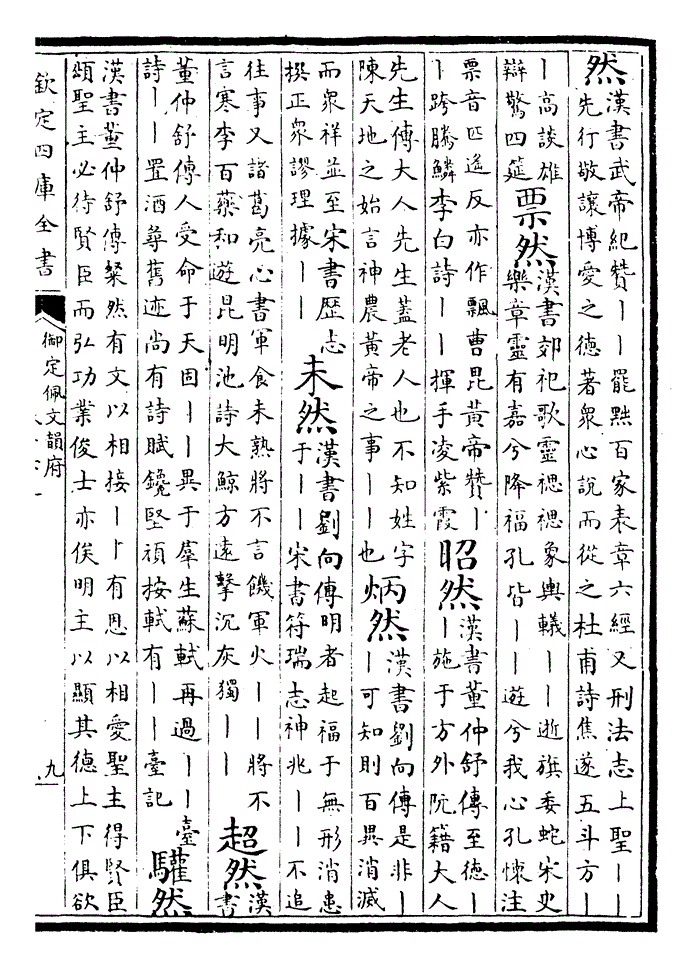 然
漢書武帝紀贊——罷黜百家表章六經又刑法志上聖——
先行敬讓博愛之德著衆心說而從之杜甫詩焦遂五斗方—
—高談雄
辯驚四筵
票然
漢書郊祀歌靈禗禗象輿轙——逝旗委蛇宋史
樂章靈有嘉兮降福孔皆——遊兮我心孔懷注
票音匹遙反亦作飄曹毘黃帝贊—
—跨騰鱗李白詩——揮手凌紫霞
昭然
漢書董仲舒傳至德—
—施于方外阮籍大人
先生傳大人先生蓋老人也不知姓字
陳天地之始言神農黃帝之事——也
炳然
漢書劉向傳是非—
—可知則百異消滅
而衆祥並至宋書歷志
撰正衆謬理據——
未然
漢書劉向傳明者起福于無形消患
于——宋書符瑞志神兆——不追
往事又諸葛亮心書軍食未熟將不言饑軍火——將不
言寒李百藥和遊昆明池詩大鯨方遠擊沉灰獨——
超然
漢
書
董仲舒傳人受命于天固——異于羣生蘇軾再過——臺
詩——置酒尊舊迹尚有詩賦鑱堅頑按軾有——臺記
驩然
漢書董仲舒傳粲然有文以相接—卜有恩以相愛聖主得賢臣
頌聖主必待賢臣而弘功業俊士亦俟明主以顯其德上下俱欲
欽定四庫全書
御定佩文韻府
九